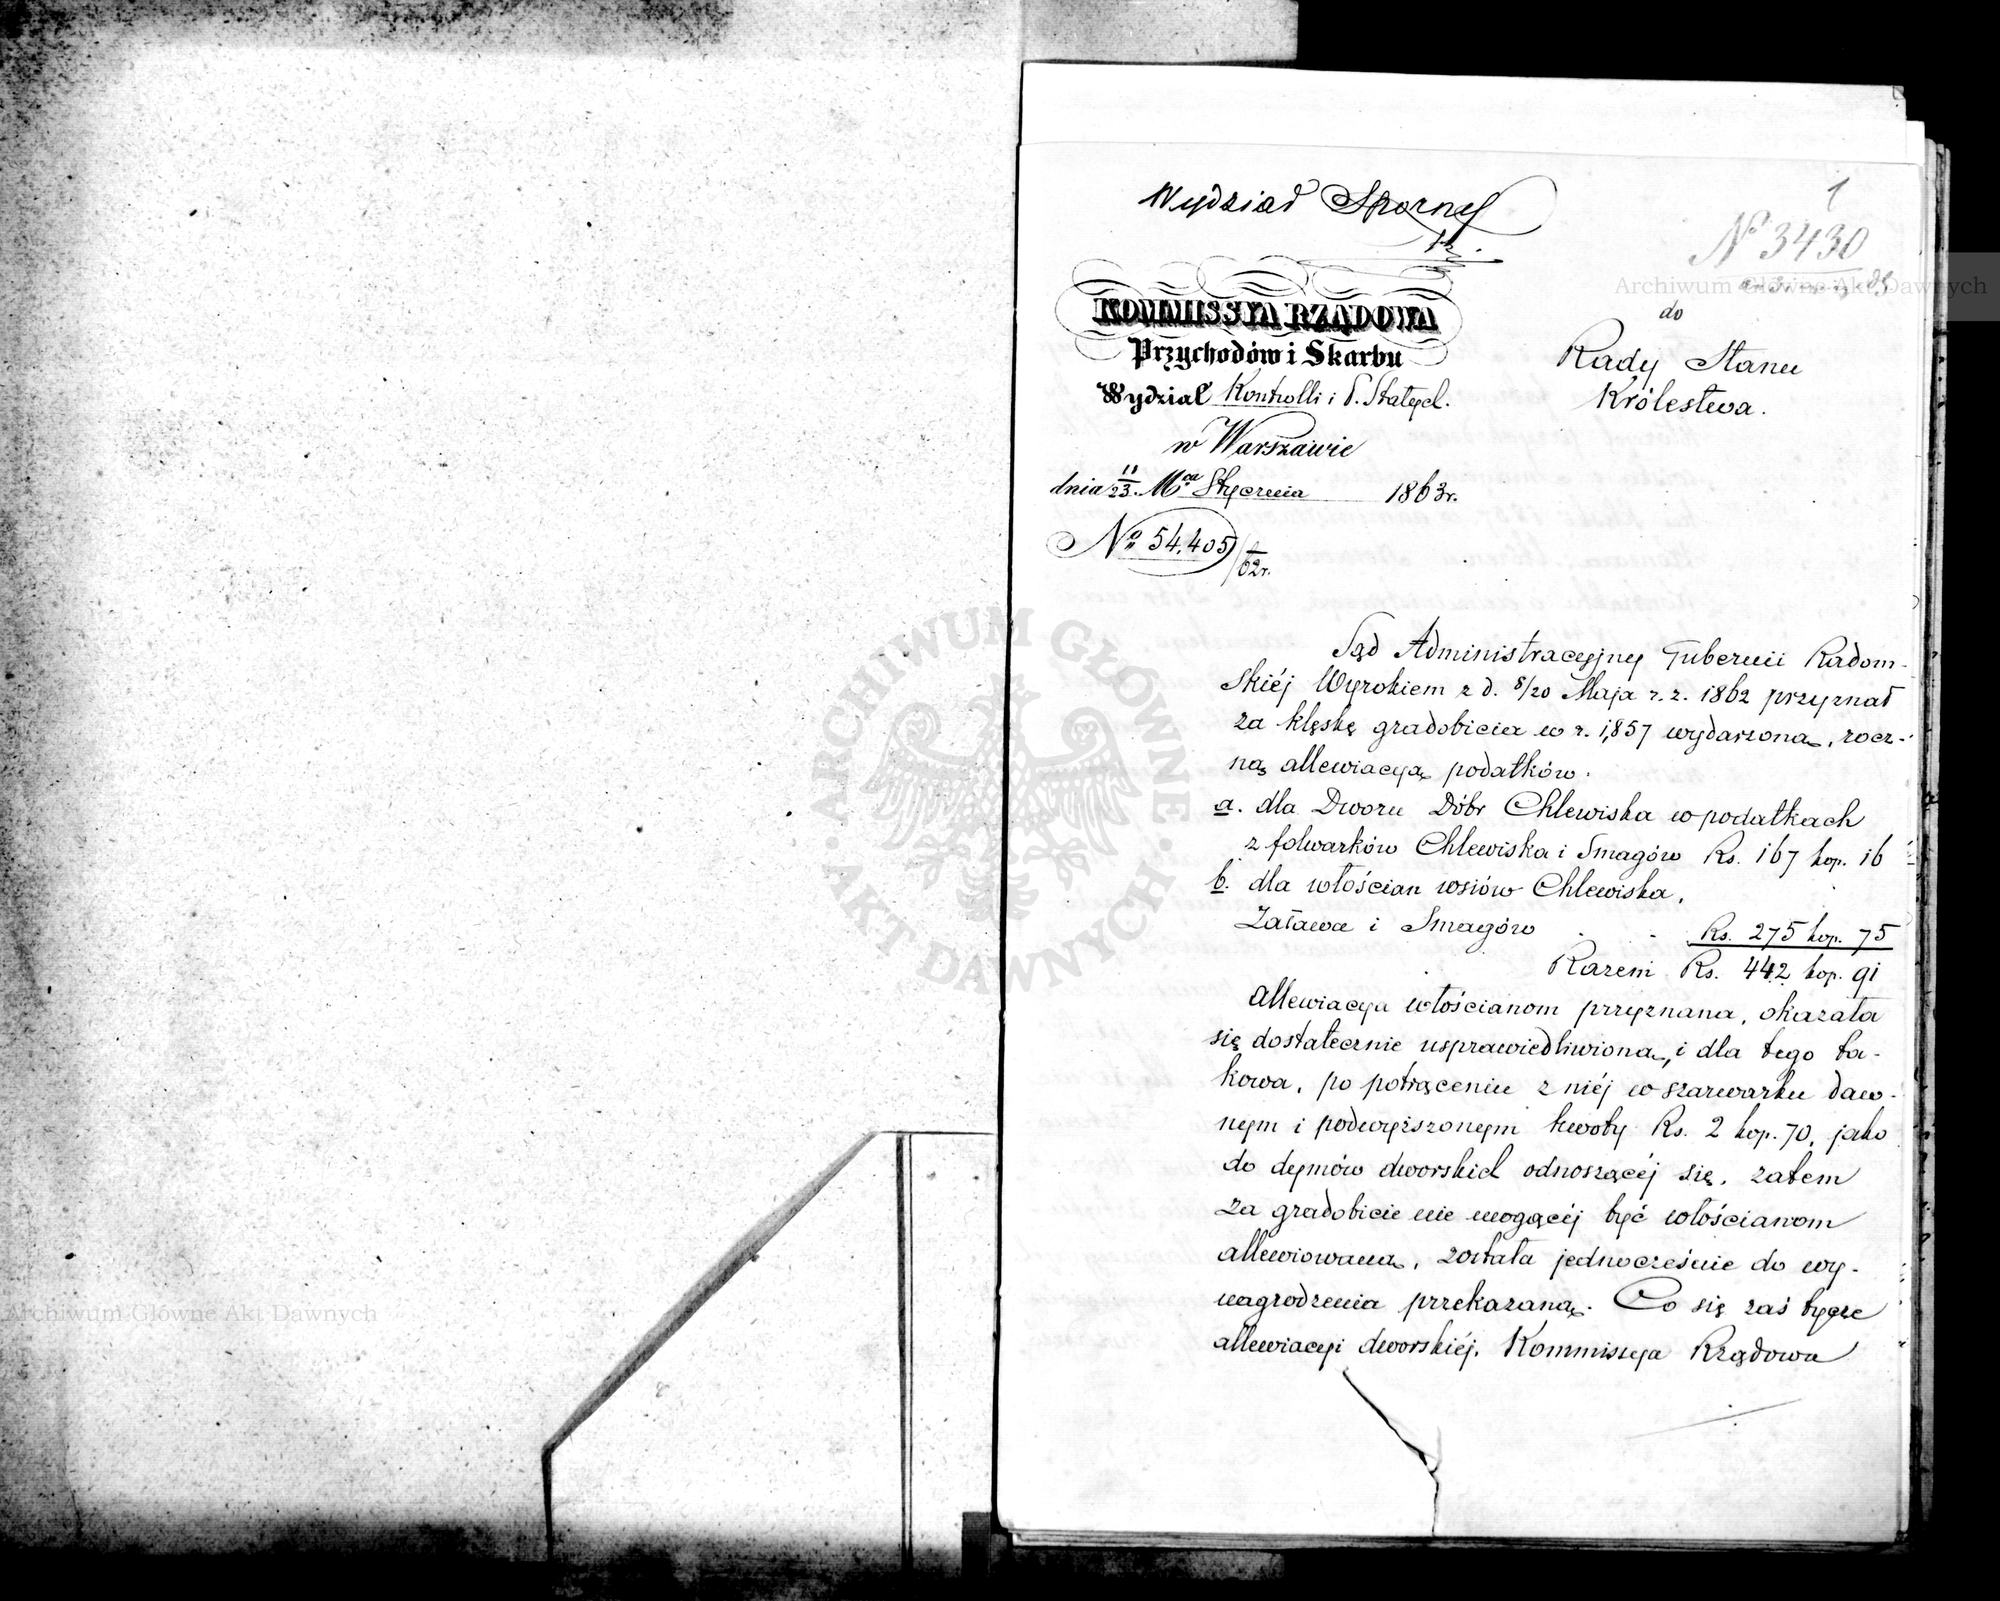 1
Wydział Sporny
№ 3430
KOMMISSYA RZĄDOWA
Przychodów i Skarbu
Wydział Kontrolli i P. Stałych.
w Warszawie
dnia 11/23. Mca Stycznia 1863r.
№ 54,405/62r.
do
Rady Stanu
Królestwa.
Sąd Administracyjny Gubernii Radom-
skiéj Wyrokiem z d. 8/20 Maja r. z. 1862 przyznał
za klęskę gradobicia w r. 1857 wydarzoną, rocz-
ną allewiacyą podatków.
a. dla Dworu Dóbr Chlewiska w podatkach
z folwarków Chlewiska i Smagów Rs. 167 kop. 16
b. dla włościan wsiów Chlewiska,
Zaława i Smagów Rs. 275 kop. 75
Razem Rs. 442 kop. 91
Allewiacya włościanom przyznana, okazała
się dostatecznie usprawiedliwioną, i dla tego ta-
kowa, po potrąceniu z niéj w szarwarku daw-
nym i podwyższonym kwoty Rs. 2 kop. 70, jako
do dymów dworskich odnoszącéj się, zatem
za gradobicie nie mogącéj być włościanom
allewiowaną, została jednocześnie do wy-
nagrodzenia przekazaną. Co się zaś tycze
allewiacyi dworskiéj, Kommissya Rządowa
ARCHIWUM GŁÓWNE AKT DAWNYCH
Archiwum Główne Akt Dawnych
Archiwum Główne Akt Dawnych